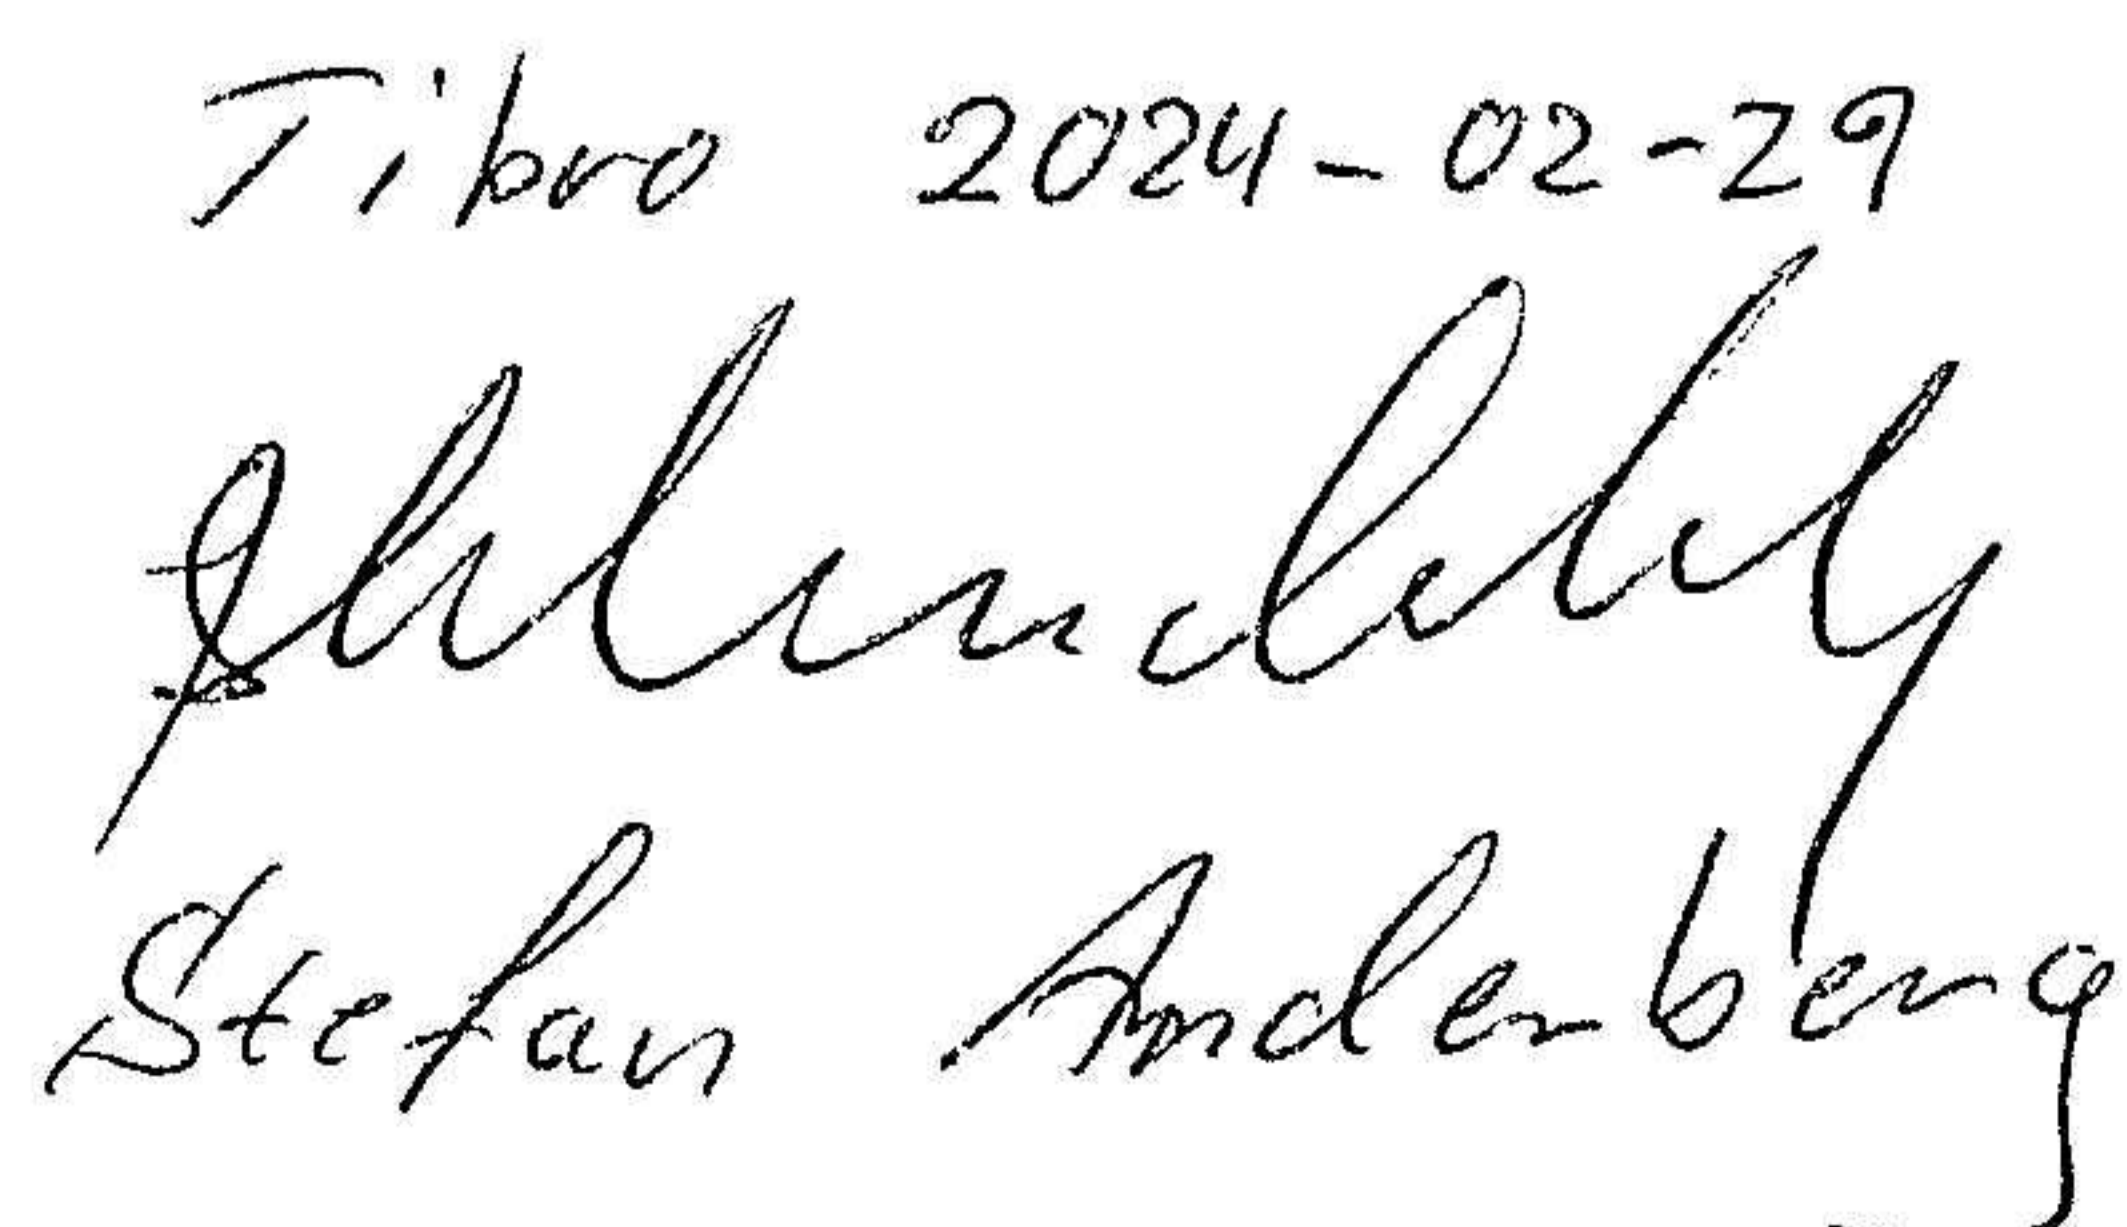 Tibro 2024-02-29
Stefan Anderberg